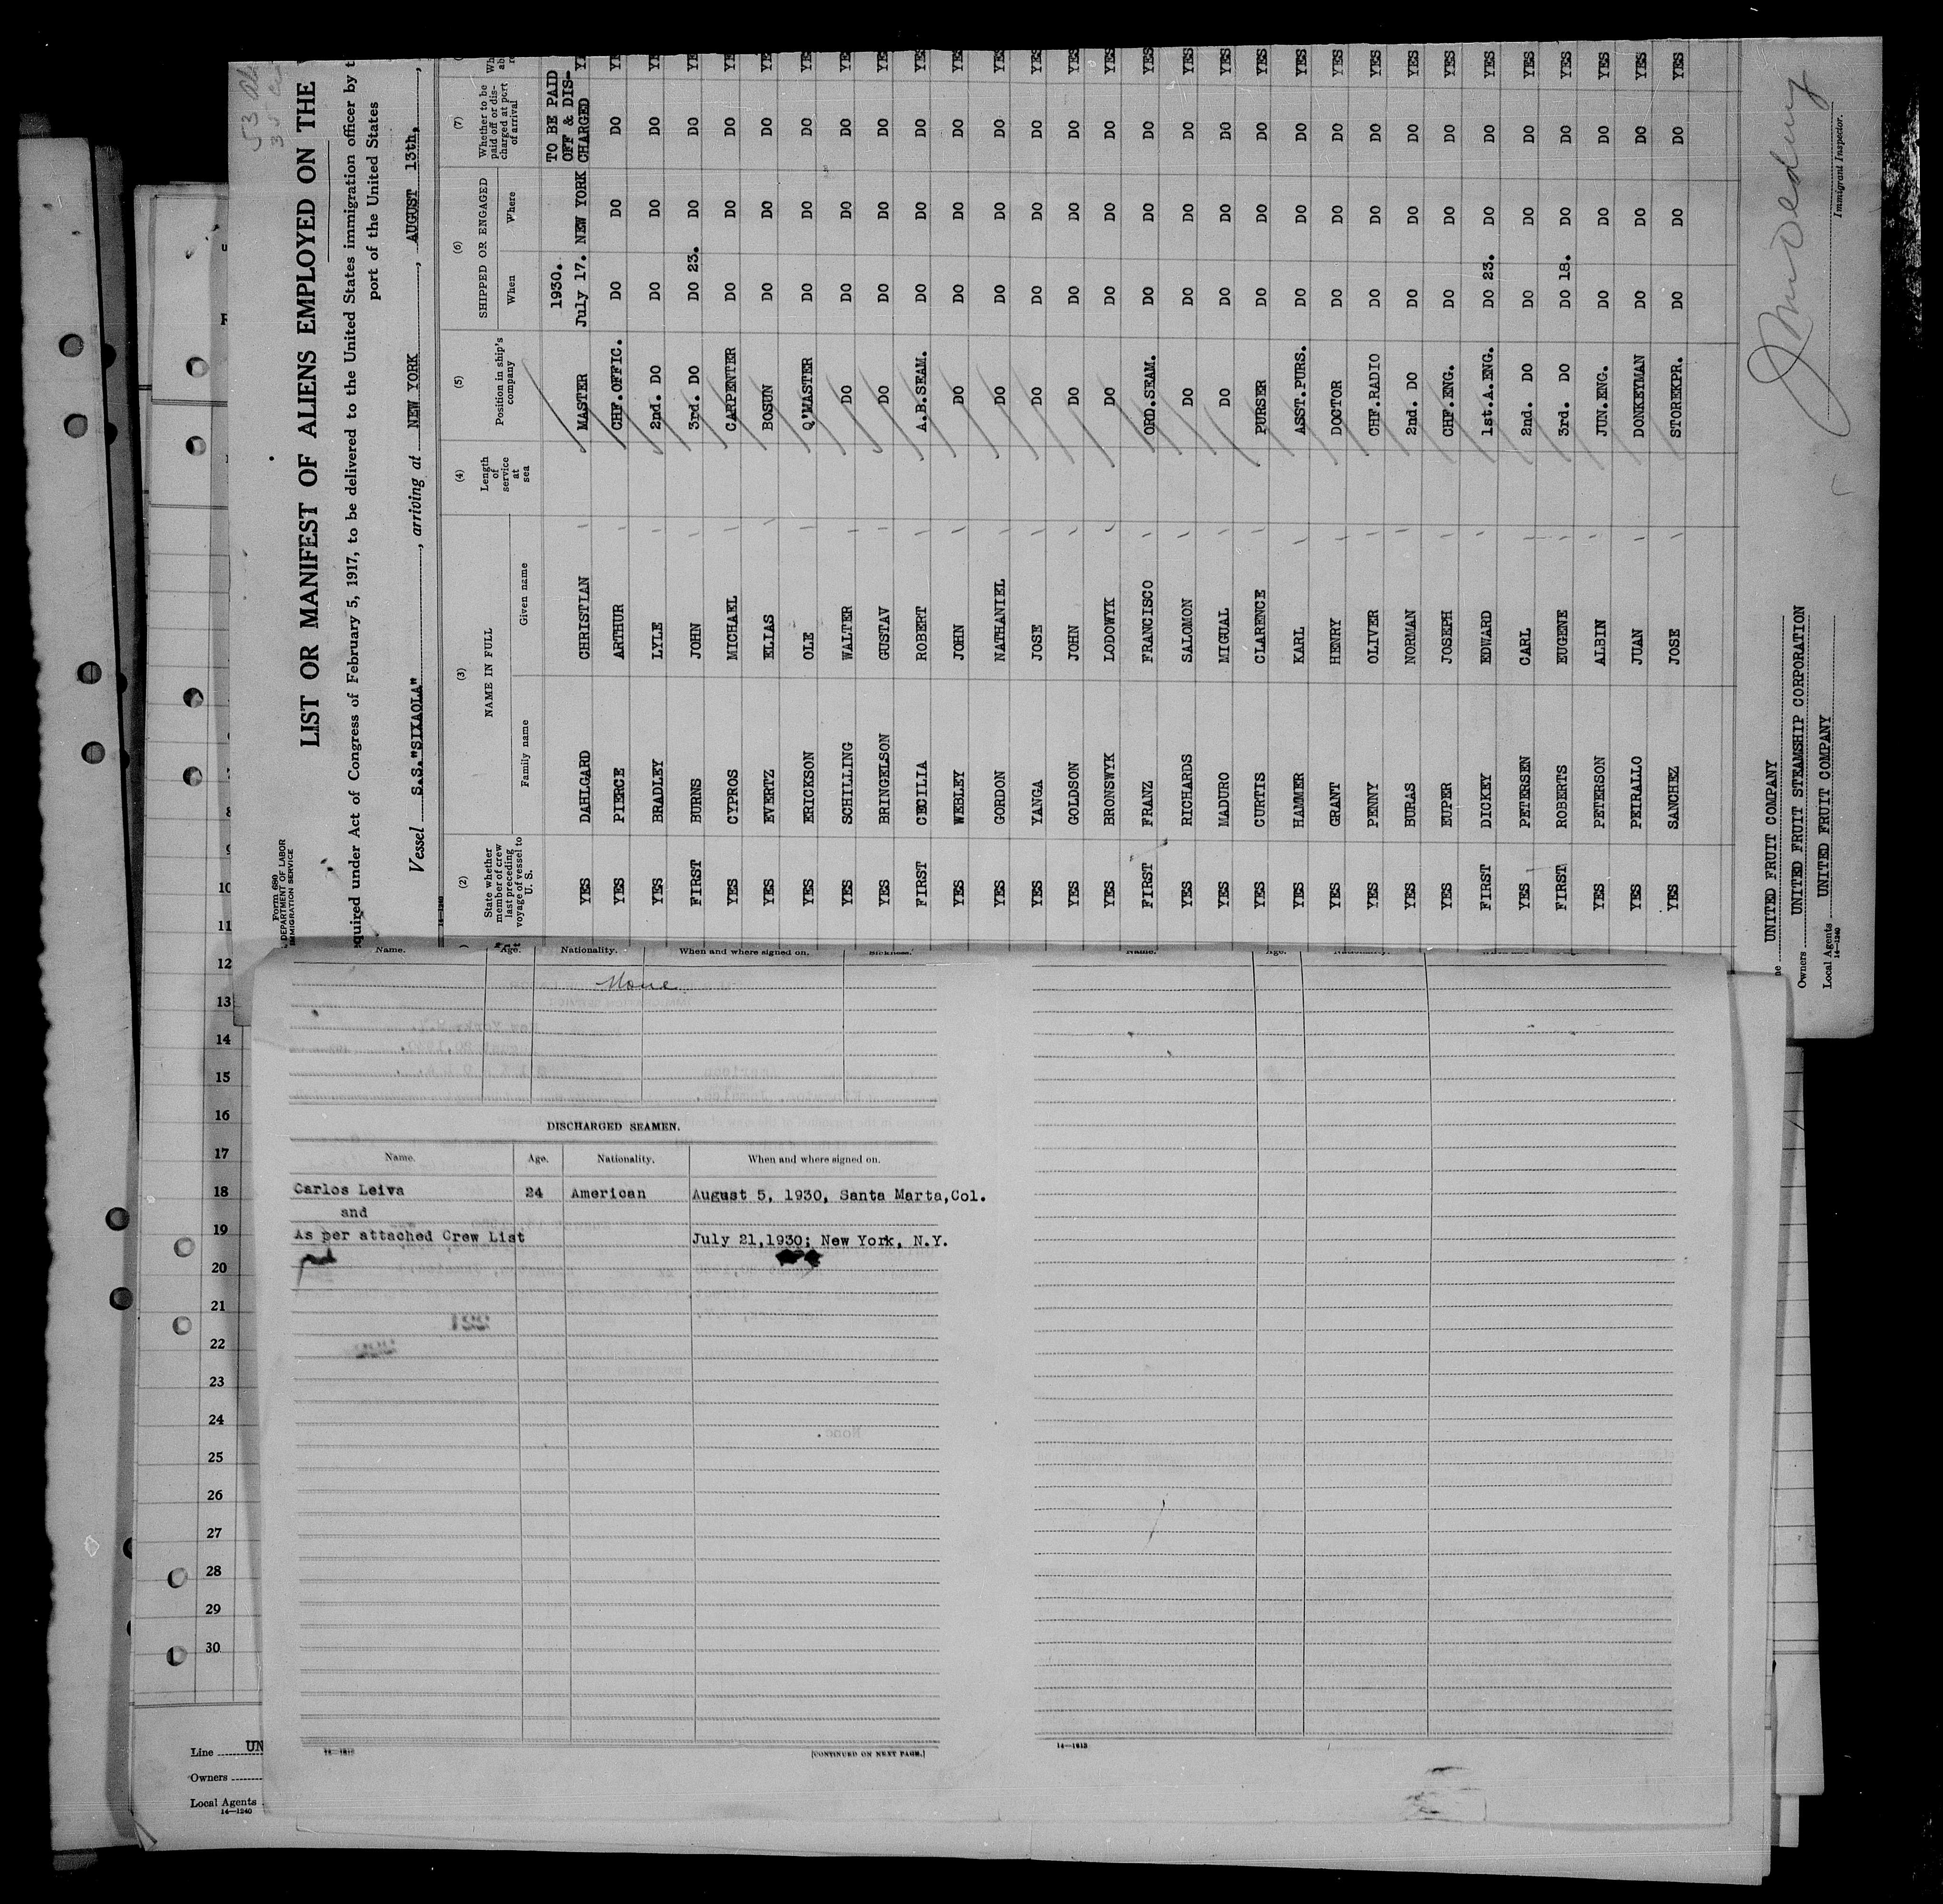 Form 680
DEPARTMENT OF LABOR
IMMIGRATION SERVICE
LIST OR MANIFEST OF ALIENS EMPLOYED ON THE
equired under Act of Congress of February 5, 1917, to be delivered to the United States immigration officer by t
port of the United States
Vessel S.S."SIXAOLA", arriving at NEW YORK, AUGUST 13th,
14-1240
(2) (3) (4) (5) (6) (7)
State whether member of crew last preceding voyage of vessel to U. S.
NAME IN FULL
Family name Given name
Length of service at sea
Position in ship's company
SHIPPED OR ENGAGED
When Where
Whether to be paid off or discharged at port of arrival
1930. TO BE PAID OFF & DIS-
YES DAHLGARD CHRISTIAN MASTER July 17. NEW YORK CHARGED
YES PIERCE ARTHUR CHF.OFFIC. DO DO DO YE
YES BRADLEY LYLE 2nd. DO DO DO DO YE
FIRST BURNS JOHN 3rd. DO DO 23. DO DO YE
YES CYPROS MICHAEL CARPENTER DO DO DO YE
YES EVERTZ ELIAS BOSUN DO DO DO YE
YES ERICKSON OLE Q'MASTER DO DO DO YE
YES SCHILLING WALTER DO DO DO DO YE
YES BRINGELSON GUSTAV DO DO DO DO YES
FIRST CECILIA ROBERT A.B.SEAM. DO DO DO YES
YES WEBLEY JOHN DO DO DO DO YES
YES GORDON NATHANIEL DO DO DO DO YES
YES YANGA JOSE DO DO DO DO YES
YES GOLDSON JOHN DO DO DO DO YES
YES BRONSWYK LODOWYK DO DO DO DO YES
FIRST FRANZ FRANCISCO ORD.SEAM. DO DO DO YES
YES RICHARDS SALOMON DO DO DO DO YES
YES MADURO MIGUAL DO DO DO DO YES
YES CURTIS CLARENCE PURSER DO DO DO YES
YES HAMMER KARL ASST.PURS. DO DO DO YES
YES GRANT HENRY DOCTOR DO DO DO YES
YES PENNY OLIVER CHF.RADIO DO DO DO YES
YES BURAS NORMAN 2nd. DO DO DO DO YES
YES EUPER JOSEPH CHF.ENG. DO DO DO YES
FIRST DICKEY EDWARD 1st.A.ENG. DO 23. DO DO YES
YES PETERSEN CARL 2nd. DO DO DO DO YES
FIRST ROBERTS EUGENE 3rd. DO DO 18. DO DO YES
YES PETERSON ALBIN JUN.ENG. DO DO DO YES
YES PEIRALLO JUAN DONKEYMAN DO DO DO YES
YES SANCHEZ JOSE STOREKPR. DO DO DO YES
UNITED FRUIT COMPANY
Owners UNITED FRUIT STEAMSHIP CORPORATION
Local Agents UNITED FRUIT COMPANY
14-1240
Immigrant Inspector.
Name. Age. Nationality. When and where signed on. Sickness.
None
DISCHARGED SEAMEN.
Name. Age. Nationality. When and where signed on.
Carlos Leiva 24 American August 5, 1930, Santa Marta,Col.
and
As per attached Crew List July 21,1930; New York, N.Y.
[CONTINUED ON NEXT PAGE.]
14-1813
8
9
10
11
12
13
14
15
16
17
18
19
20
21
22
23
24
25
26
27
28
29
30
Line UN
Owners
Local Agents
14-1240